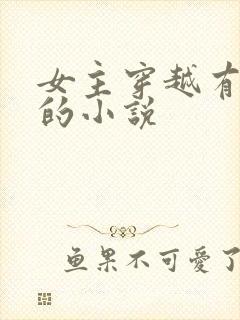 女主穿越有
的小説
鱼果不可愛了